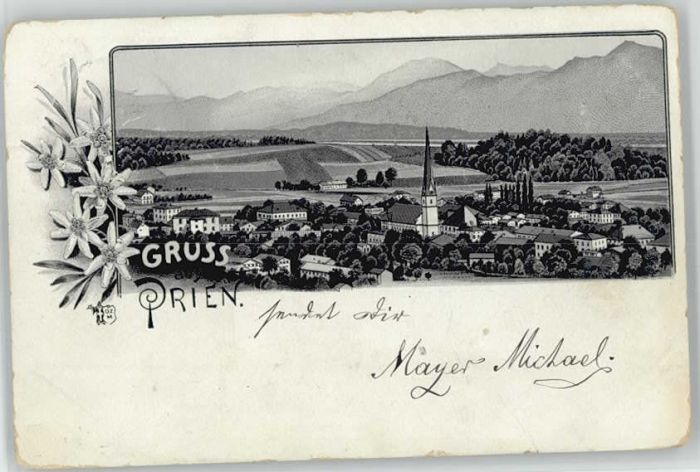 GRUSS
aus
PRIEN.
sendet Dir
Mayer Michael.